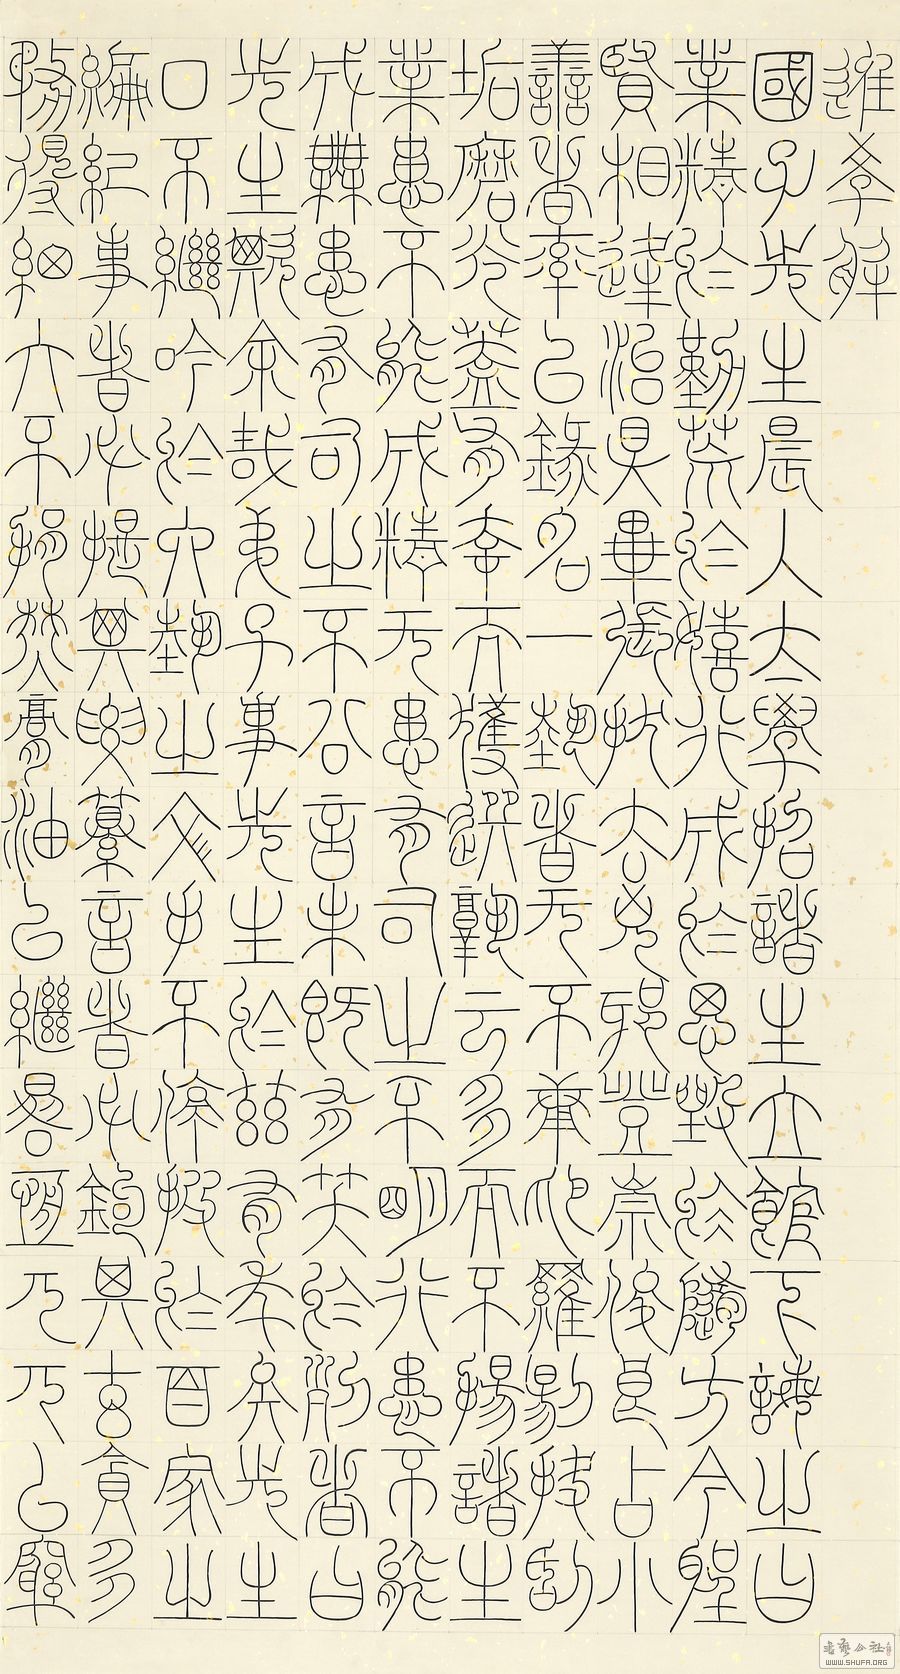 進學解
國子先生晨入太學招諸生立館下誨之曰
業精於勤荒於嬉行成於思毀於隨方今聖
賢相逢治具畢張拔去兇邪登崇俊良占小
善者率以錄名一藝者无不庸爬羅剔抉刮
垢磨光蓋有幸而獲選孰云多而不揚諸生
業患不能成精无患有司之不明行患不能
成無患有司之不公言未既有笑於列者曰
先生欺余哉弟子事先生於茲有年矣先生
口不繼吟於六藝之文手不停披於百家之
編紀事者必提其要纂言者必鉤其玄貪多
務得細大不捐焚膏油以繼晷恆兀兀以窮
書藝公社
WWW.SHUFA.ORG